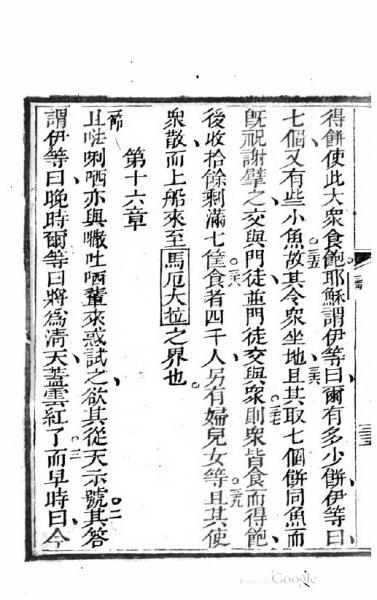 得餅使此大衆食飽耶穌謂伊等曰爾有多少餅伊等曰
七個又有些小魚故其令衆坐地且其取七個餅同魚而
旣祝謝擘之交與門徒並門徒交與衆則衆皆食而得飽
後收拾餘剩滿七筐食者四千人另有婦兒女等且其使
衆散而上船來至馬厄大拉之界也
第十六章
一節
且㗭唎哂亦與𠹌吐哂輩來惑試之欲其從天示號其答
謂伊等曰晚時爾等曰將爲淸天蓋雲紅了而早時曰今
Google